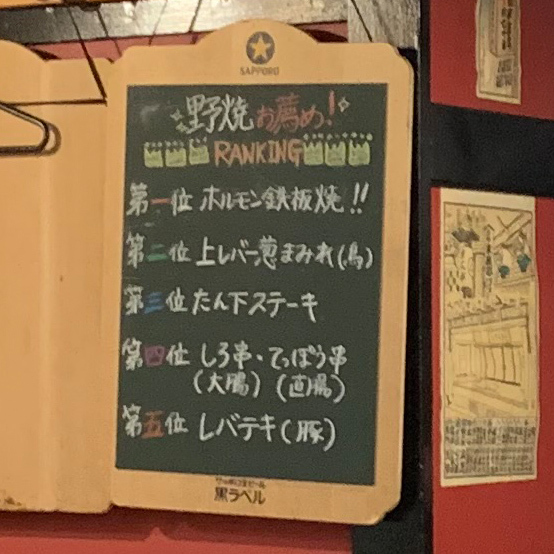 SAPPORO
野焼お薦め!
RANKING
第一位 ホルモン鉄板焼!!
第二位 上レバー葱まみれ(鳥)
第三位 たん下ステーキ
第四位 しろ串・てっぽう串
(大腸) (直腸)
第五位 レバテキ(豚)
サッポロ生ビール
黒ラベル